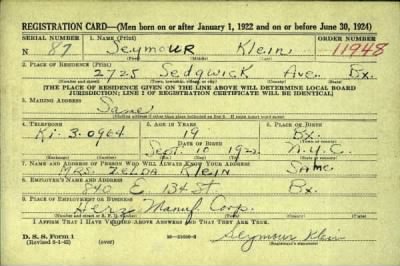 REGISTRATION CARD—(Men born on or after January 1, 1922 and on or before June 30, 1924)
SERIAL NUMBER 1. NAME (Print) ORDER NUMBER
N 87 Seymour Klein 11948
(First) (Middle) (Last)
2. PLACE OF RESIDENCE (Print)
2725 Sedgwick Ave. Bx.
(Number and street) (Town, township, village, or city) (County) (State)
[THE PLACE OF RESIDENCE GIVEN ON THE LINE ABOVE WILL DETERMINE LOCAL BOARD
JURISDICTION; LINE 2 OF REGISTRATION CERTIFICATE WILL BE IDENTICAL]
3. MAILING ADDRESS
Same
(Mailing address if other than place indicated on line 2. If same insert word same)
4. TELEPHONE 5. AGE IN YEARS 6. PLACE OF BIRTH
Ki. 3-0964 19 Bx.
DATE OF BIRTH (Town or county)
Sept. 10 N.Y.C.
(Exchange) (Number) (Mo.) (Day) (Yr.) (State or country)
7. NAME AND ADDRESS OF PERSON WHO WILL ALWAYS KNOW YOUR ADDRESS
Mrs. Zelda Klein Same
8. EMPLOYER'S NAME AND ADDRESS
840 E. 134 St. Bx.
9. PLACE OF EMPLOYMENT OR BUSINESS
Herz Manuf. Corp.
(Number and street or R. F. D. number) (Town) (County) (State)
I AFFIRM THAT I HAVE VERIFIED ABOVE ANSWERS AND THAT THEY ARE TRUE.
D. S. S. Form 1
(over) Seymour Klein